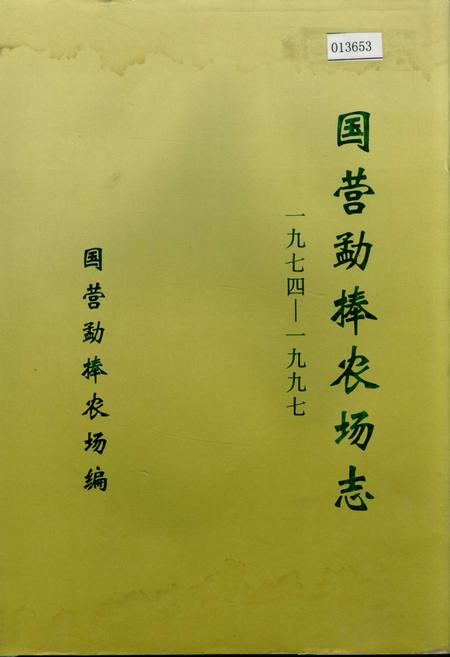 013653
国营勐捧农场志
一九七四—一九九七
国营勐捧农场编